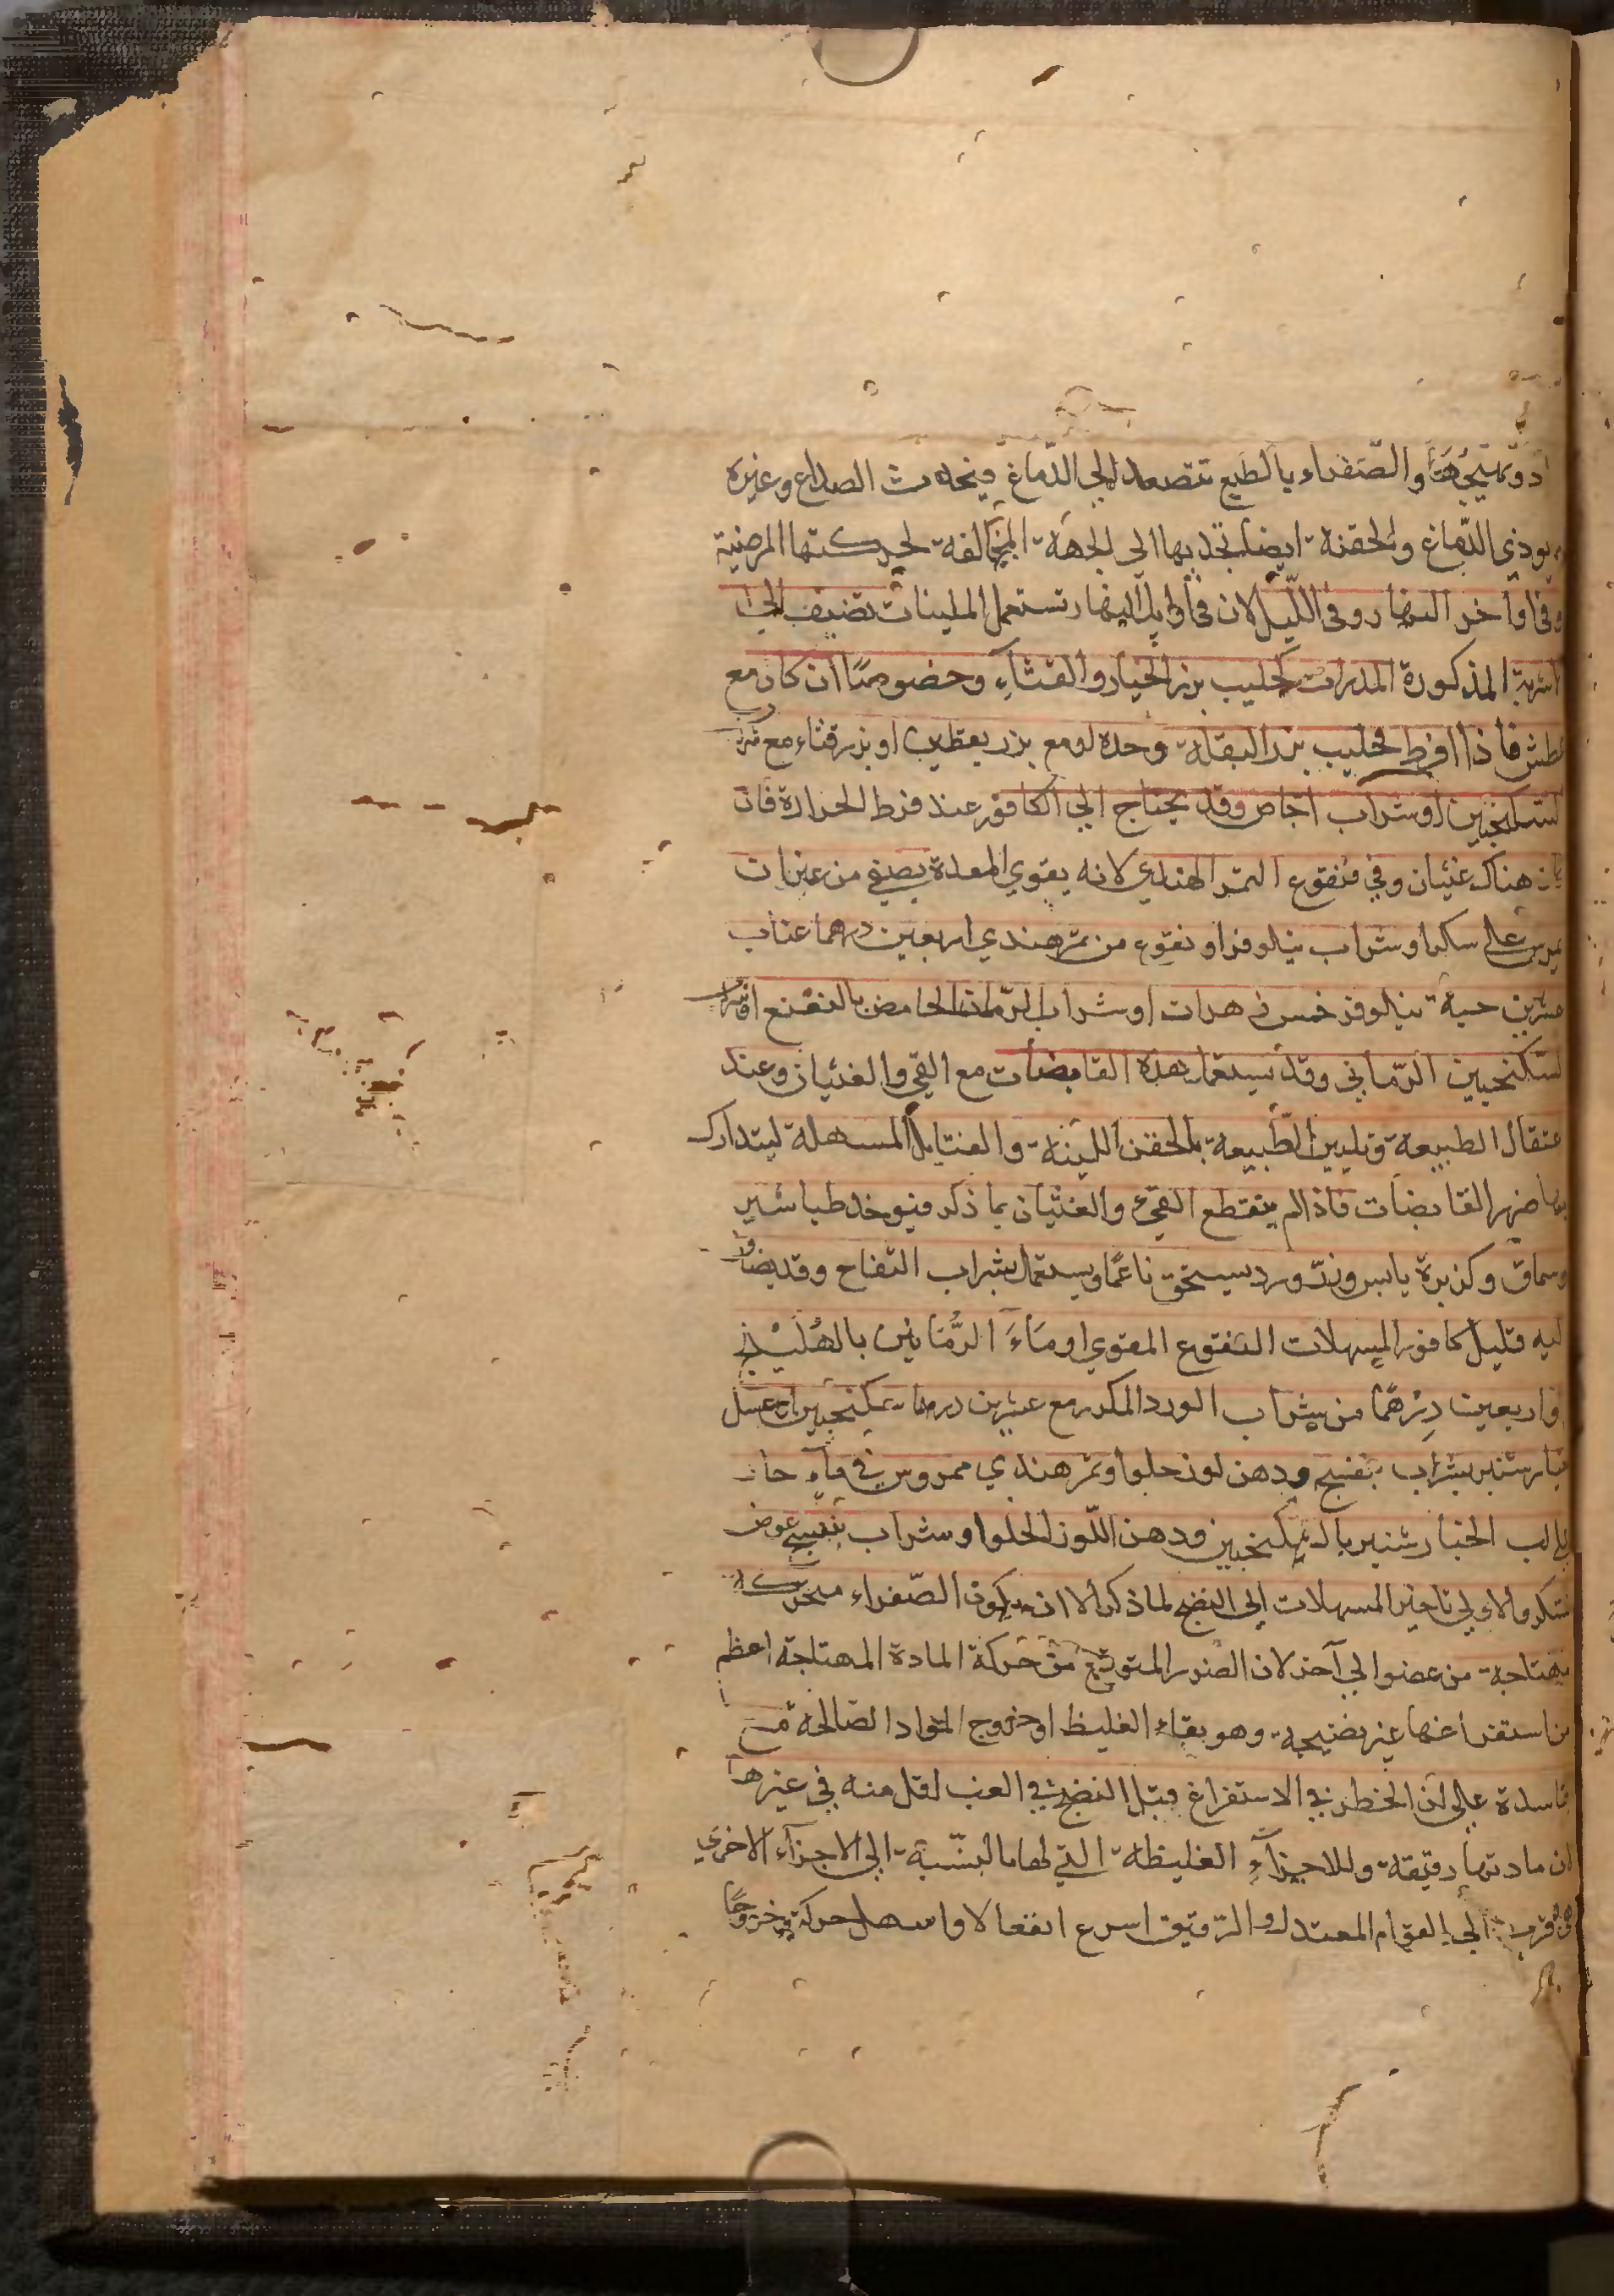 والصّفراء بالطبع تتصعد الي الدّماغ فيحدث الصداع وغيره
يوذي الدّماغ والحقنة ايضا تجذبها الي الجهة المخالفة لحركتها المرضية
وفي اواخر النهار وفي اللّيل لان في اوايل النهار تستعمل الملينات تضيف الي
اشربة المذكورة المدرات كحليب بزر الخيار والقثاءِ وخصوصًا ان كان مع
عطش فاذا افرط فحليب بزر البقلة وحده او مع بزر يقطين او بزر قثاء مع شراب
لسكنجبين او شراب اجاص وقد يحتاج الي الكافور عند فرط الحرارة فان
كان هناك غثيان وفي فنقوع التمر الهندي لانه يقوي المعدة يصفي من غير ان
يمرس علي سكر او شراب نيلوفر او نقوع من تمر هندي اربعين درهما عناب
عشرين حبة نيلوفر خمس زهرات او شراب الرّمان الحامض بالنعنع او شراب
لسّكنجبين الرّماني وقد يستعمل بهذه القابضات مع القي والغثيان وعند
عتقال الطبيعة وتليين الطّبيعة بالحقن اللّينة والفتايل المسهلة ليتدارك
بها ضرر القابضات فاذا لم ينقطع القيء والغثيان بما ذكر فيوخذ طباشير
وسماق وكزبرة يابس وزرّ ورد يسحق ناعمًا ويستعمل بشراب التفاح وقد يضاف
ليه قليل كافور المسهلات النقوع المقوي او مَاءَ الرُّمانين بالهليْلج
واربعين دِرْهمًا من شراب الورد المكرر مع عشرين درهما سكنجبين او عسل
خيار شنبر بشراب بنفسج ودهن لوز حلو او تمر هندي ممروس في ماءٍ حار
علي لب الخيار شنبر بالسّكنجبين ودهن اللّوز الحلو او شراب بنفسج عوض
لسكر والاولي تاخير المسهلات الي النضج لما ذكر الا ان يكون الصّفراء متحركة
مهتاجة من عضو الي آخر لان الضرر المتوقع من حركة المادة المهتاجة اعظم
من استفراغها غير نضيجة وهو بقاء الغليظ او خروج المواد الصالحة مع
فاسدة علي ان الخطر في الاستفراغ قبل النضج في الغب اقل منه في غيرها
لان مادتها رقيقة وللاجزآءِ الغليظة التي لها بالنّسبة الي الاجزآء الاخري
اقرب الي القوام المعتدل والرّقيق اسرع انفعالا واسهل حركة وخروجًا